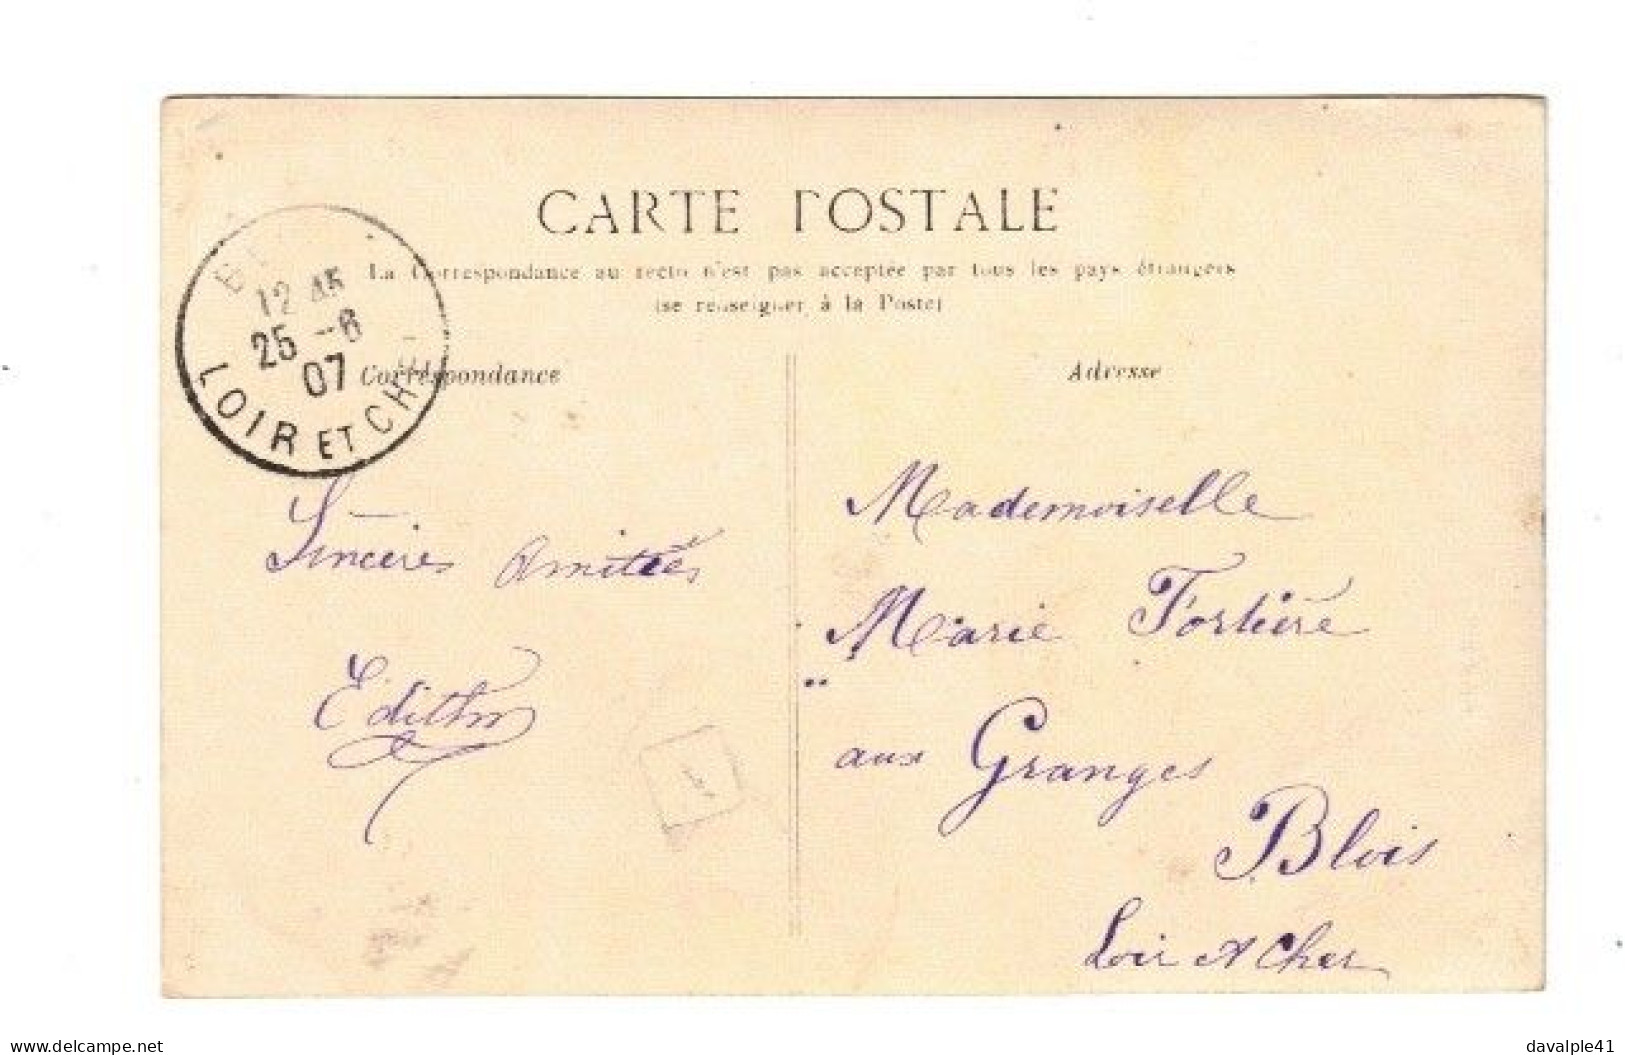 CARTE POSTALE
La Correspondance au recto n'est pas acceptée par tous les pays étrangers
(se renseigner à la Poste)
12 45
25 -6
07
LOIR ET CHER
Correspondance
Adresse
Sincères Amitiés
Edith
Mademoiselle
Marie Fortière
aux Granges
Blois
Loir et Cher
www.delcampe.net
davalple41